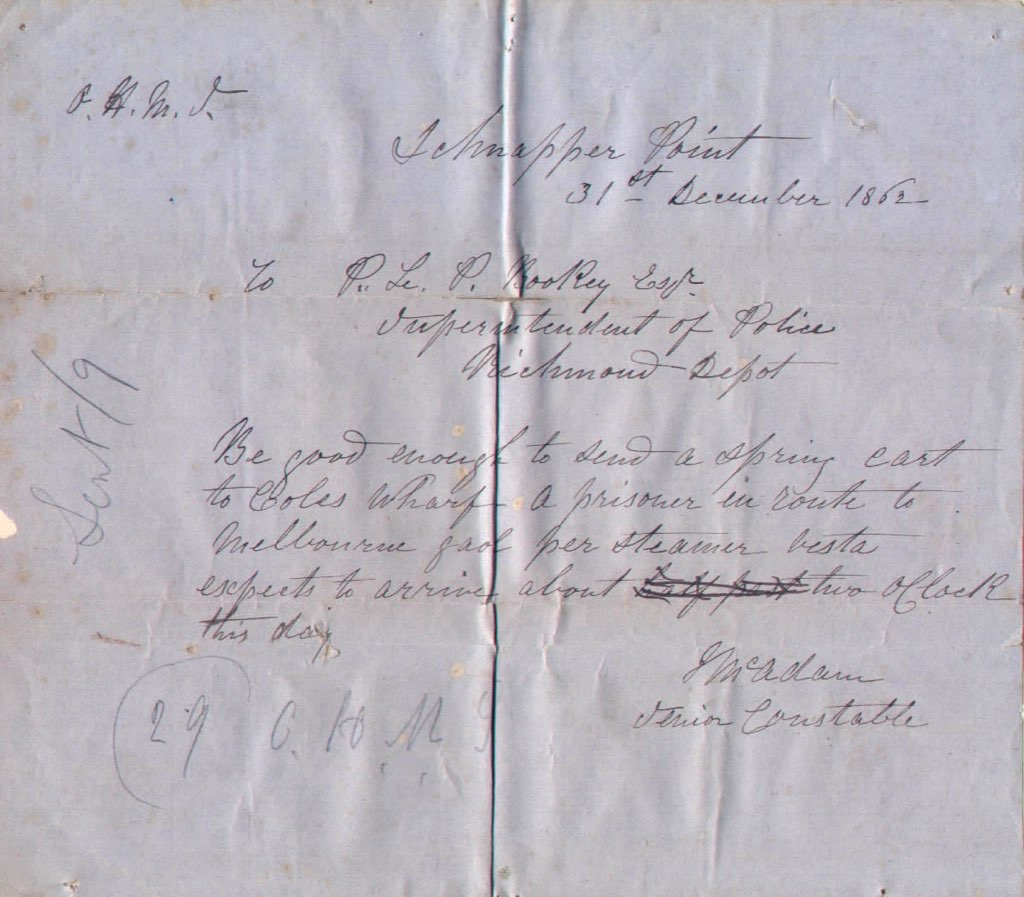 O.H.M.S.
Schnapper Point
31st December 1862
To P. Le. P. Bookey Esqr
Superintendent of Police
Richmond Depot
Sent/9
Be good enough to send a spring cart
to Coles Wharf. A prisoner in route to
Melbourne gaol per steamer vesta
expects to arrive about half past two oClock
this day
J McAdam
Senior Constable
29 O. H. M. S